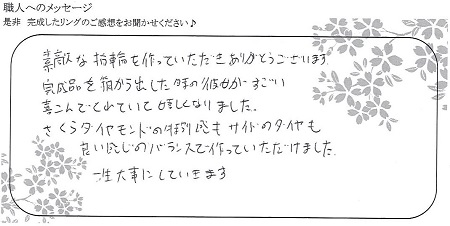 職人へのメッセージ
是非 完成したリングのご感想をお聞かせください♪
素敵な指輪を作っていただきありがとうございます
完成品を箱から出した時の彼女がすごい
喜こんでくれていて嬉しくなりました。
さくらダイヤモンドの特別感もサイドのダイヤも
良い感じのバランスで作っていただけました。
一生大事にしていきます